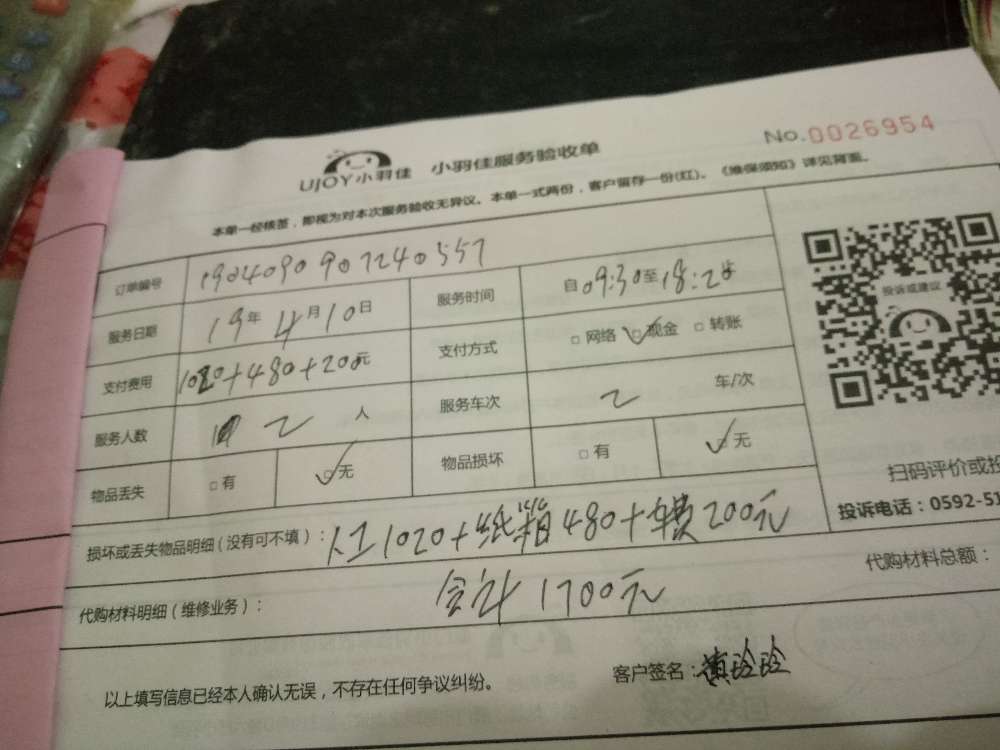 No.0026954
UJOY小羽佳 小羽佳服务验收单
本单一经核签，即视为对本次服务验收无异议。本单一式两份，客户留存一份(红)。《维保须知》详见背面。
订单编号 1904090907240557 服务时间 自09:30至18:2
服务日期 19年4月10日 支付方式 □网络 ☑现金 □转账
支付费用 1020+480+200元
服务人数 2人 服务车次 2 车/次
物品丢失 □有 ☑无 物品损坏 □有 ☑无
投诉或建议
扫码评价或投
投诉电话：0592-51
损坏或丢失物品明细(没有可不填)： 人工1020+纸箱480+车费200元
代购材料明细(维修业务)： 合计1700元 代购材料总额：
以上填写信息已经本人确认无误，不存在任何争议纠纷。 客户签名：玲玲